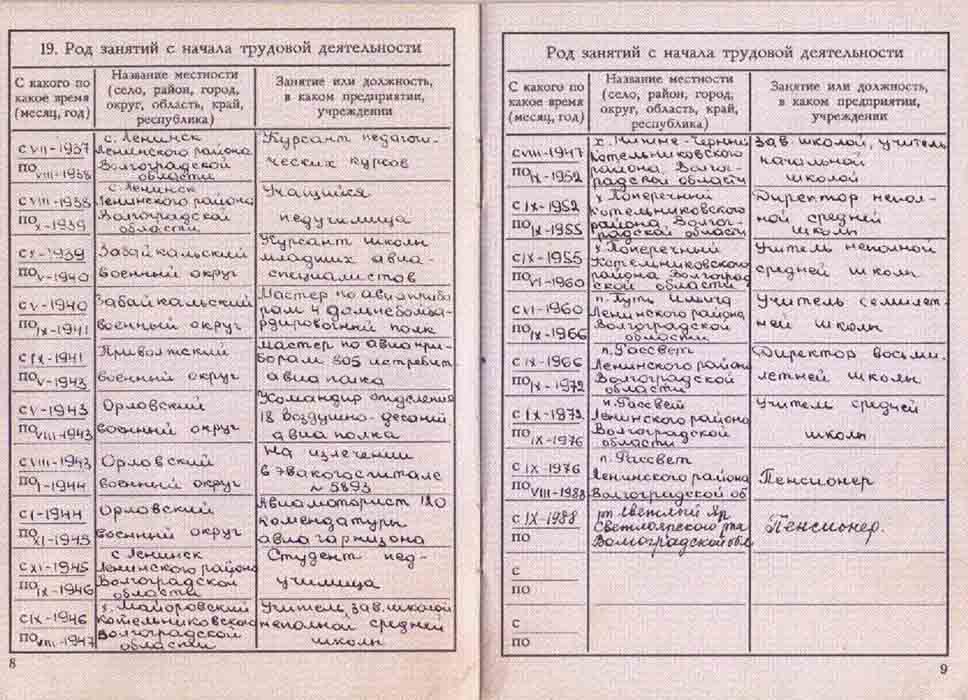 19. Род занятий с начала трудовой деятельности
С какого по
какое время
(месяц, год)
Название местности
(село, район, город,
округ, область, край,
республика)
Занятие или должность,
в каком предприятии,
учреждении
с VII-1937
по VIII-1938
с. Ленинск
Ленинского района
Волгоградской
области
Курсант педагоги-
ческих курсов
с VIII-1938
по X-1939
с. Ленинск
Ленинского района
Волгоградской
области
Учащийся
педучилища
с X-1939
по V-1940
Забайкальский
военный округ
Курсант школы
младших авиа-
специалистов
с V-1940
по IX-1941
Забайкальский
военный округ
Мастер по авиаприбо
рам 4 бомба-
рдировочный полк
с IX-1941
по V-1943
Приволжский
военный округ
Мастер по авиапри-
борам 305 истребит.
авиа полка
с V-1943
по VIII-1943
Орловский
военный округ
Командир отделения
18 воздушно-десант
авиа полка
с VIII-1943
по I-1944
Орловский
военный округ
На излечении
в эвакогоспитале
№ 5893
с I-1944
по XI-1945
Орловский
военный округ
Авиамоторист 120
комендатуры
авиагарнизона
с XI-1945
по IX-1946
с Ленинск
Ленинского района
Волгоградской
области
Студент пед-
училища
с IX-1946
по VIII-1947
х. Майоровский
Котельниковского
Волгоградской
области
Учитель, зав. школой
неполной средней
школы
8
Род занятий с начала трудовой деятельности
С какого по
какое время
(месяц, год)
Название местности
(село, район, город,
округ, область, край,
республика)
Занятие или должность,
в каком предприятии,
учреждении
с VIII-1947
по IX-1952
Котельниковского
района, Волго-
градской области
Зав. школой, учитель
начальной
школой
с IX-1952
по IX-1955
х Поперечный
Котельниковского
района Волгог-
радской области
Директор непол-
ной средней
школы
с IX-1955
по VI-1960
х. Поперечный
Котельниковского
района Волгоград
ской области
Учитель неполной
средней школы
с VI-1960
по IX-1966
п. Путь Ильича
Ленинского района
Волгоградской
области
Учитель семилет-
ней школы
с IX-1966
по IX-1972
п. Рассвет
Ленинского района
Волгоградской
области
Директор восьми-
летней школы
с IX-1972
по IX-1976
п. Рассвет
Ленинского района
Волгоградской
области
Учитель средней
школы
с IX-1976
по VIII-1988
п. Рассвет
Ленинского района
Волгоградской об
Пенсионер
с IX-1988
по
рп Светлый Яр
Светлоярского р-на
Волгоградской обл
Пенсионер.
с
по
с
по
9